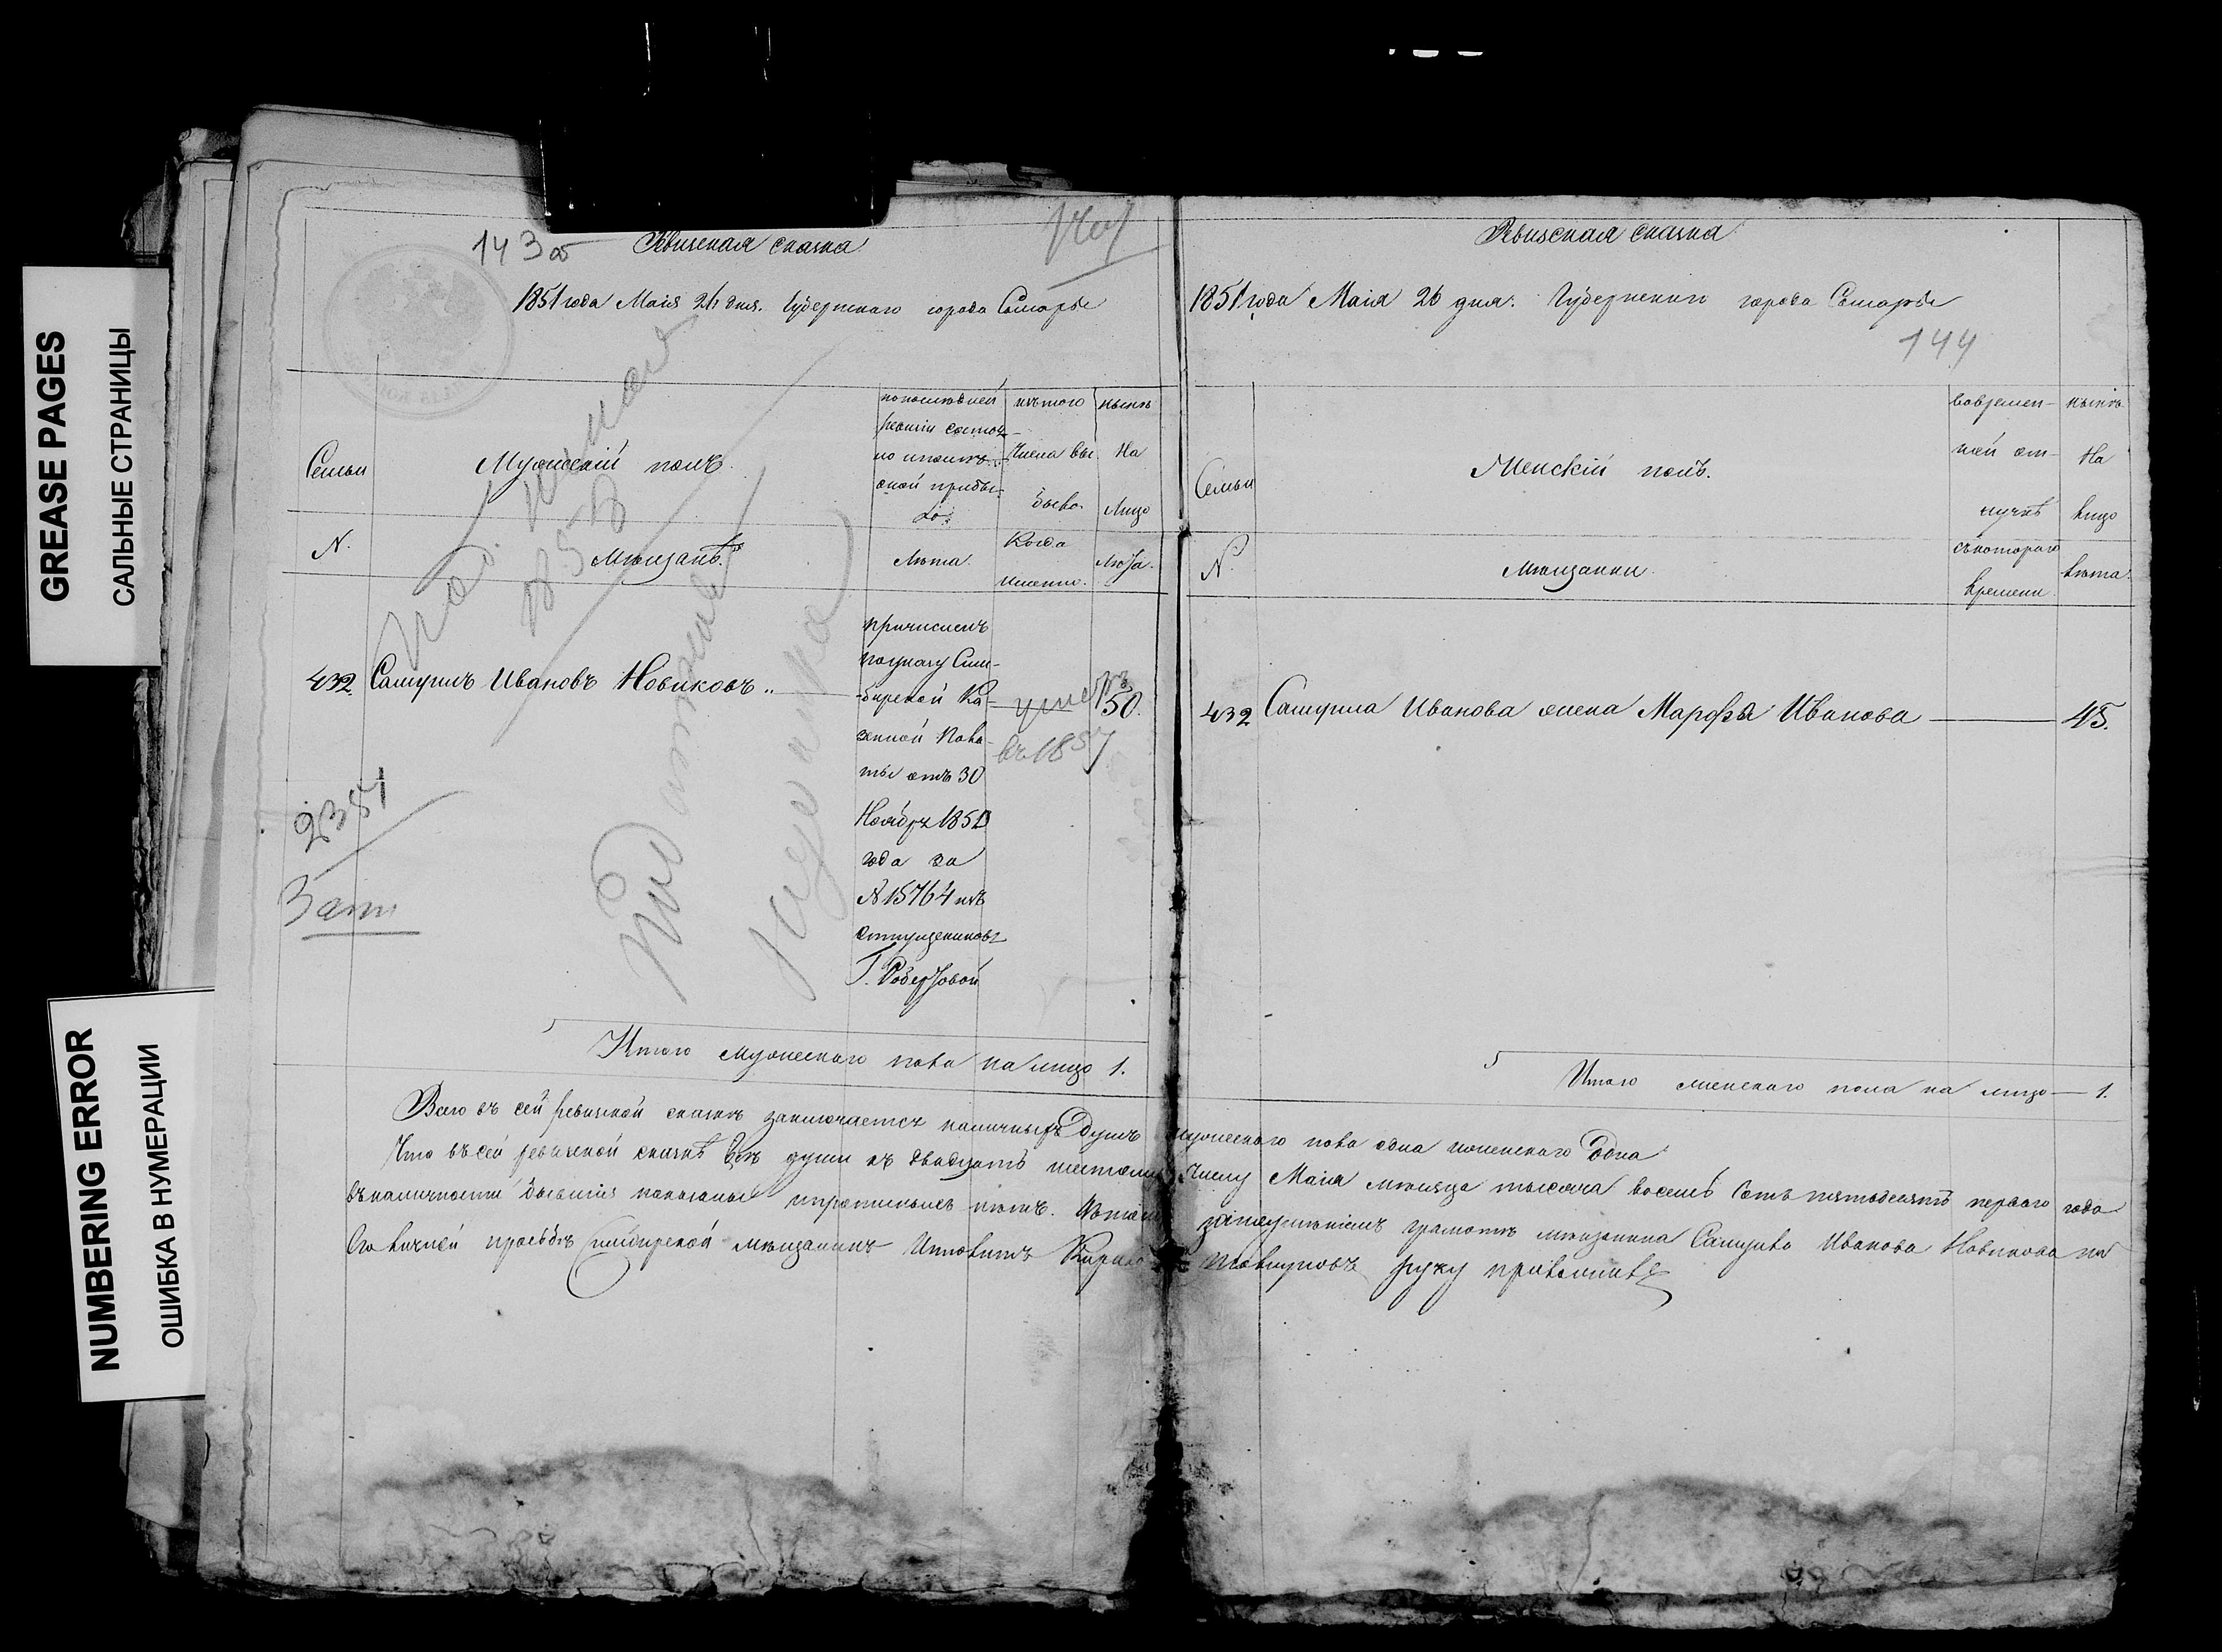 GREASE PAGES
САЛЬНЫЕ СТРАНИЦЫ
NUMBERING ERROR
ОШИБКА В НУМЕРАЦИИ
143 об
Ревизская сказка
1851 года Маія 26 дня. Губернскаго города Самары
Семьи
Мужескій полъ.
по последней
ревизіи состоя-
ло и после
оной прибы-
ло.
изъ того
числа вы
было.
ныне
на
лицо
N.
Мѣщанъ.
Лѣта.
Когда
именно.
Лѣта.
432
Самуилъ Ивановъ Новиковъ
причисленъ
по указу Сим-
бирской Ка-
зенной Пала-
ты отъ 30
Ноября 1850
года за
N 15764 изъ
отпущениковъ
Г.
умеръ
въ 1857
50.
2351
Итого мужескаго пола на лицо 1.
Ревизская сказка
1851 года Маія 26 дня. Губернскаго города Самары
144
Семьи
Женскій полъ.
во времен-
ной от-
лучкѣ
нынѣ
на
лицо
N.
Мѣщанки.
съ котораго
времени
лѣта.
432
Самуила Иванова жена Марфа Иванова
45.
Итого женскаго пола на лицо — 1.
Всего въ сей ревизской сказкѣ заключается наличныхъ душъ мужескаго пола одна женскаго одна
Что въ сей ревизской сказкѣ всѣ души къ двадцать шестому числу Маія мѣсяца тысяча восемь сотъ пятьдесятъ перваго года
въ наличности бывшія показаны и прописныхъ нѣтъ. Въ томъ за неумѣніемъ грамотѣ мѣщанина Самуила Иванова Новикова по
Его личной прозьбѣ Симбирской мѣщанинъ руку приложилъ